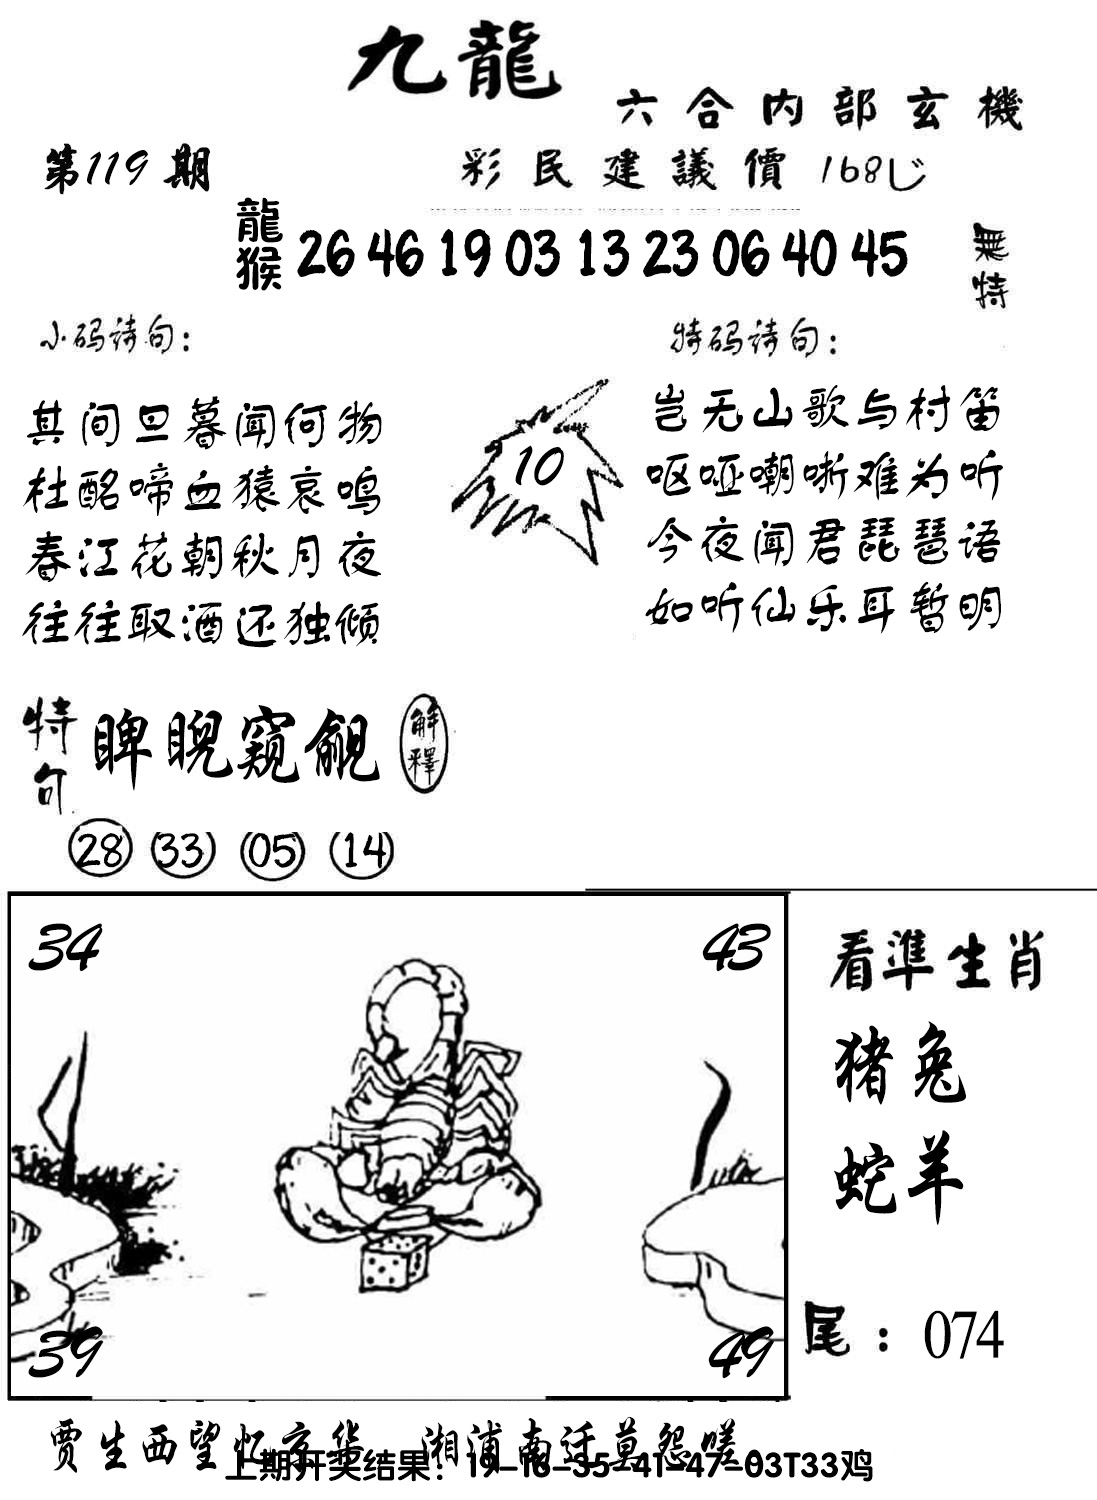 九龍
六合内部玄機
第119期
彩民建議價168じ
龍猴 26 46 19 03 13 23 06 40 45
無特
小码诗句：
其间旦暮闻何物
杜酩啼血猿哀鸣
春江花朝秋月夜
往往取酒还独倾
10
特码诗句：
岂无山歌与村笛
呕哑嘲哳难为听
今夜闻君琵琶语
如听仙乐耳暂明
特句 睥睨窥觎 解釋
28 33 05 14
34 43
39 49
看準生肖
猪兔
蛇羊
尾：074
贾生西望忆京华 湘浦南迁莫怨嗟
上期开奖结果：19-16-35-41-47-03T33鸡